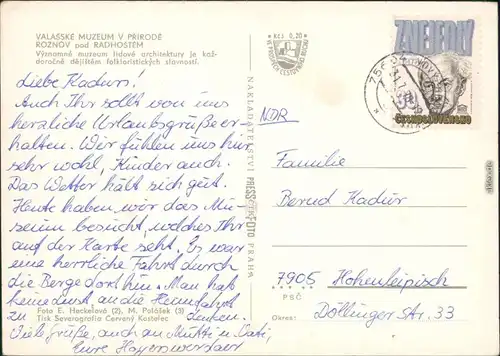 VALAŠSKÉ MUZEUM V PŘÍRODĚ
ROŽNOV pod RADHOŠTĚM
Významné muzeum lidové architektury je kaž-
doročně dějištěm folkloristických slavností.
Liebe Kadurs!
Auch Ihr sollt von uns
herzliche Urlaubsgrüße er-
halten. Wir fühlen uns hier
sehr wohl, Kinder auch.
Das Wetter hält sich gut.
Heute haben wir das Mu-
seum besucht, welches Ihr
auf der Karte seht. Es war
eine herrliche Fahrt durch
die Berge dorthin. Man hat
keine Lust, an die Heimfahrt
zu denken.
Viele Grüße, auch an Mutti u. Vati,
Eure Hoyerswerdaer
Foto E. Heckelová (2), M. Polášek (3)
Tisk Severografia Červený Kostelec
Kčs 0,20
NAKLADATELSTVÍ PRESSFOTO PRAHA
ZD. NEJEDLÝ
ČESKOSLOVENSKO
NDR
Familie
Bernd Kadur
7905 Hohenleipisch
PSČ
Okres:
Döllinger Str. 33